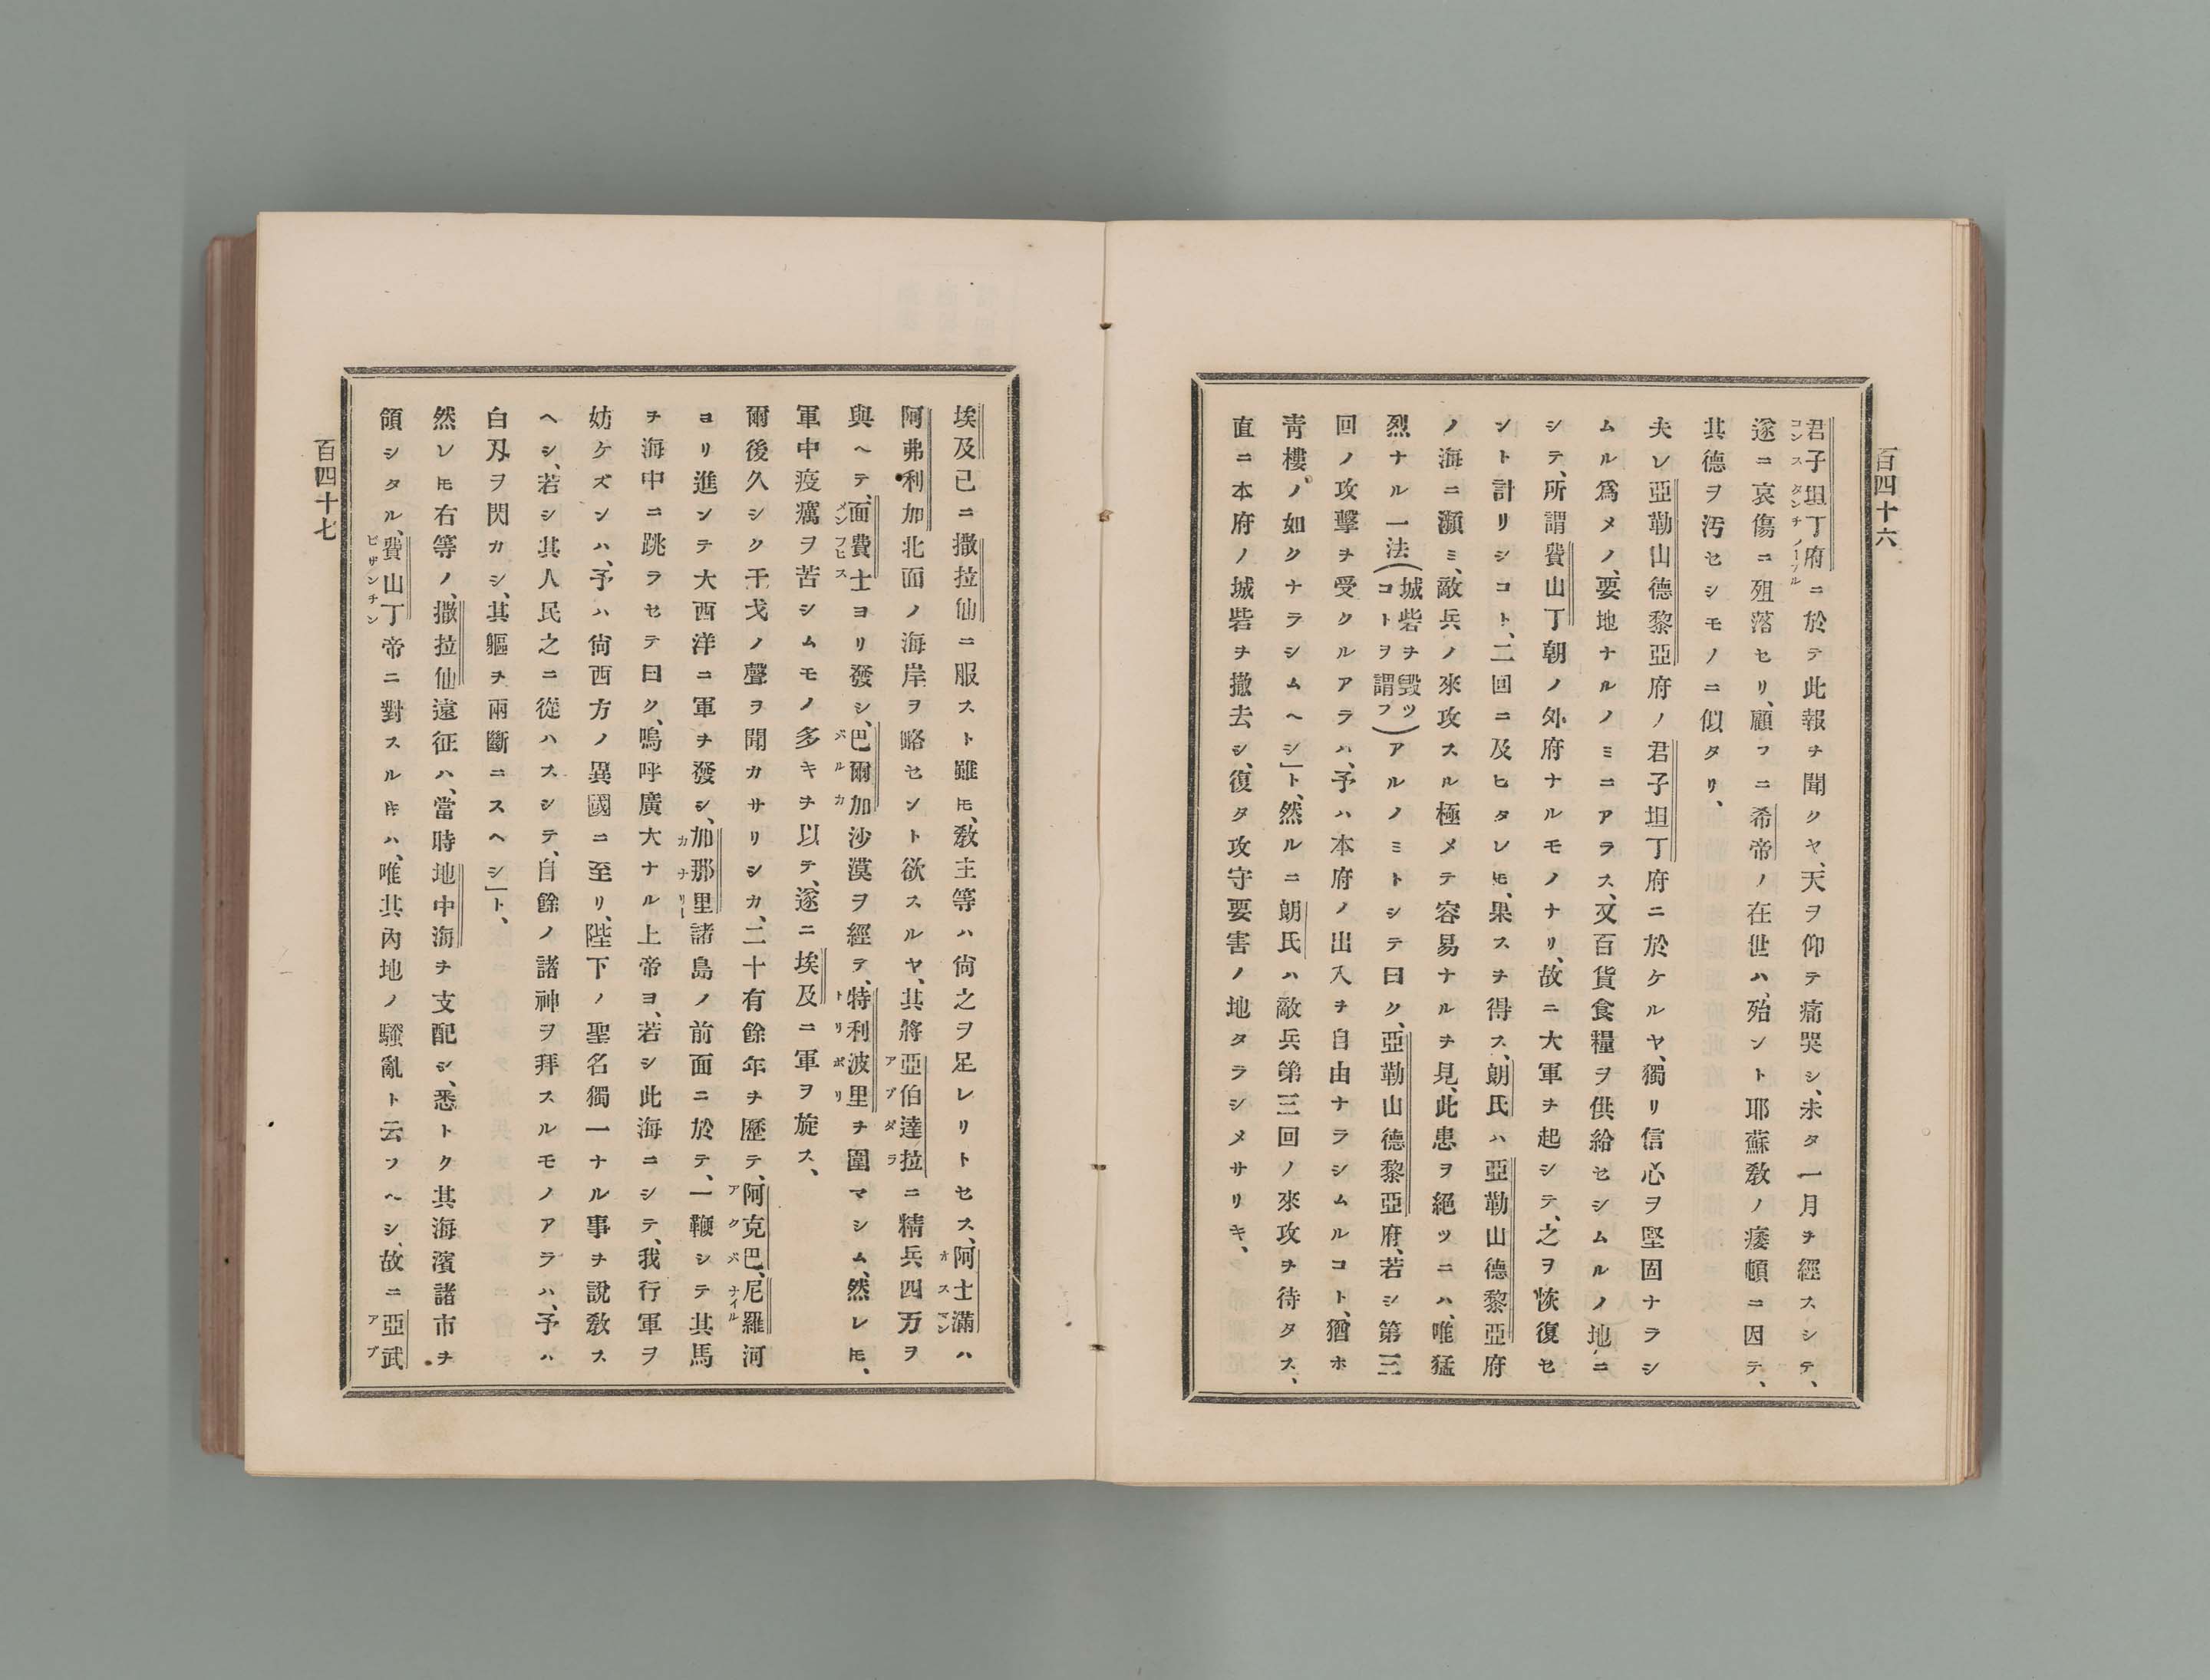 百四十六
君子坦丁府ニ於テ此報ヲ聞クヤ、天ヲ仰テ痛哭シ、未タ一月ヲ經スシテ、
コンスタンチノープル
遂ニ哀傷ニ殂落セリ、顧フニ希帝ノ在世ハ、殆ント耶蘇敎ノ痿頓ニ因テ、
其德ヲ汚セシモノニ似タリ、
夫レ亞勒山德黎亞府ノ君子坦丁府ニ於ケルヤ、獨リ信心ヲ堅固ナラシ
ムル爲メノ、要地ナルノミニアラス、又百貨食糧ヲ供給セシムルノ地ニ
シテ、所謂費山丁朝ノ外府ナルモノナリ、故ニ大軍ヲ起シテ、之ヲ恢復セ
ント計リシコト、二回ニ及ヒタレ𪜈、果スヲ得ス、朗氏ハ亞勒山德黎亞府
ノ海ニ瀕ミ、敵兵ノ來攻スル極メテ容易ナルヲ見、此患ヲ絕ツニハ、唯猛
烈ナル一法(城砦ヲ毀ツコトヲ謂フ)アルノミトシテ曰ク、亞勒山德黎亞府、若シ第三
回ノ攻擊ヲ受クルアラハ、予ハ本府ノ出入ヲ自由ナラシムルコト、猶ホ
靑樓ノ如クナラシムヘシ」ト、然ルニ朗氏ハ敵兵第三回ノ來攻ヲ待タス、
直ニ本府ノ城砦ヲ撤去シ、復タ攻守要害ノ地タラシメサリキ、
埃及已ニ撒拉仙ニ服スト雖𪜈、敎主等ハ尙之ヲ足レリトセス、阿士滿ハ
オスマン
阿弗利加北面ノ海岸ヲ略セント欲スルヤ、其將亞伯達拉ニ精兵四万ヲ
アブダラ
與ヘテ、面費士ヨリ發シ、巴爾加沙漠ヲ經テ、特利波里ヲ圍マシム、然レ𪜈、
メンフヒス バルカ トリポリ
軍中疫癘ヲ苦シムモノ多キヲ以テ、遂ニ埃及ニ軍ヲ旋ス、
爾後久シク干戈ノ聲ヲ聞カサリシカ、二十有餘年ヲ歷テ、阿克巴、尼羅河
アクバ ナイル
ヨリ進ンテ大西洋ニ軍ヲ發シ、加那里諸島ノ前面ニ於テ、一鞭シテ其馬
カナリー
ヲ海中ニ跳ラセテ曰ク、嗚呼廣大ナル上帝ヨ、若シ此海ニシテ、我行軍ヲ
妨ケズンハ、予ハ尙西方ノ異國ニ至リ、陛下ノ聖名獨一ナル事ヲ說敎ス
ヘシ、若シ其人民之ニ從ハスシテ、自餘ノ諸神ヲ拜スルモノアラハ、予ハ
白刄ヲ閃カシ、其軀ヲ兩斷ニスヘシ」ト、
然レ𪜈右等ノ、撒拉仙遠征ハ、當時地中海ヲ支配シ、悉トク其海濱諸市ヲ
領シタル、費山丁帝ニ對スル𪜈ハ、唯其內地ノ騷亂ト云フヘシ、故ニ亞武
ビザンチン アブ
百四十七